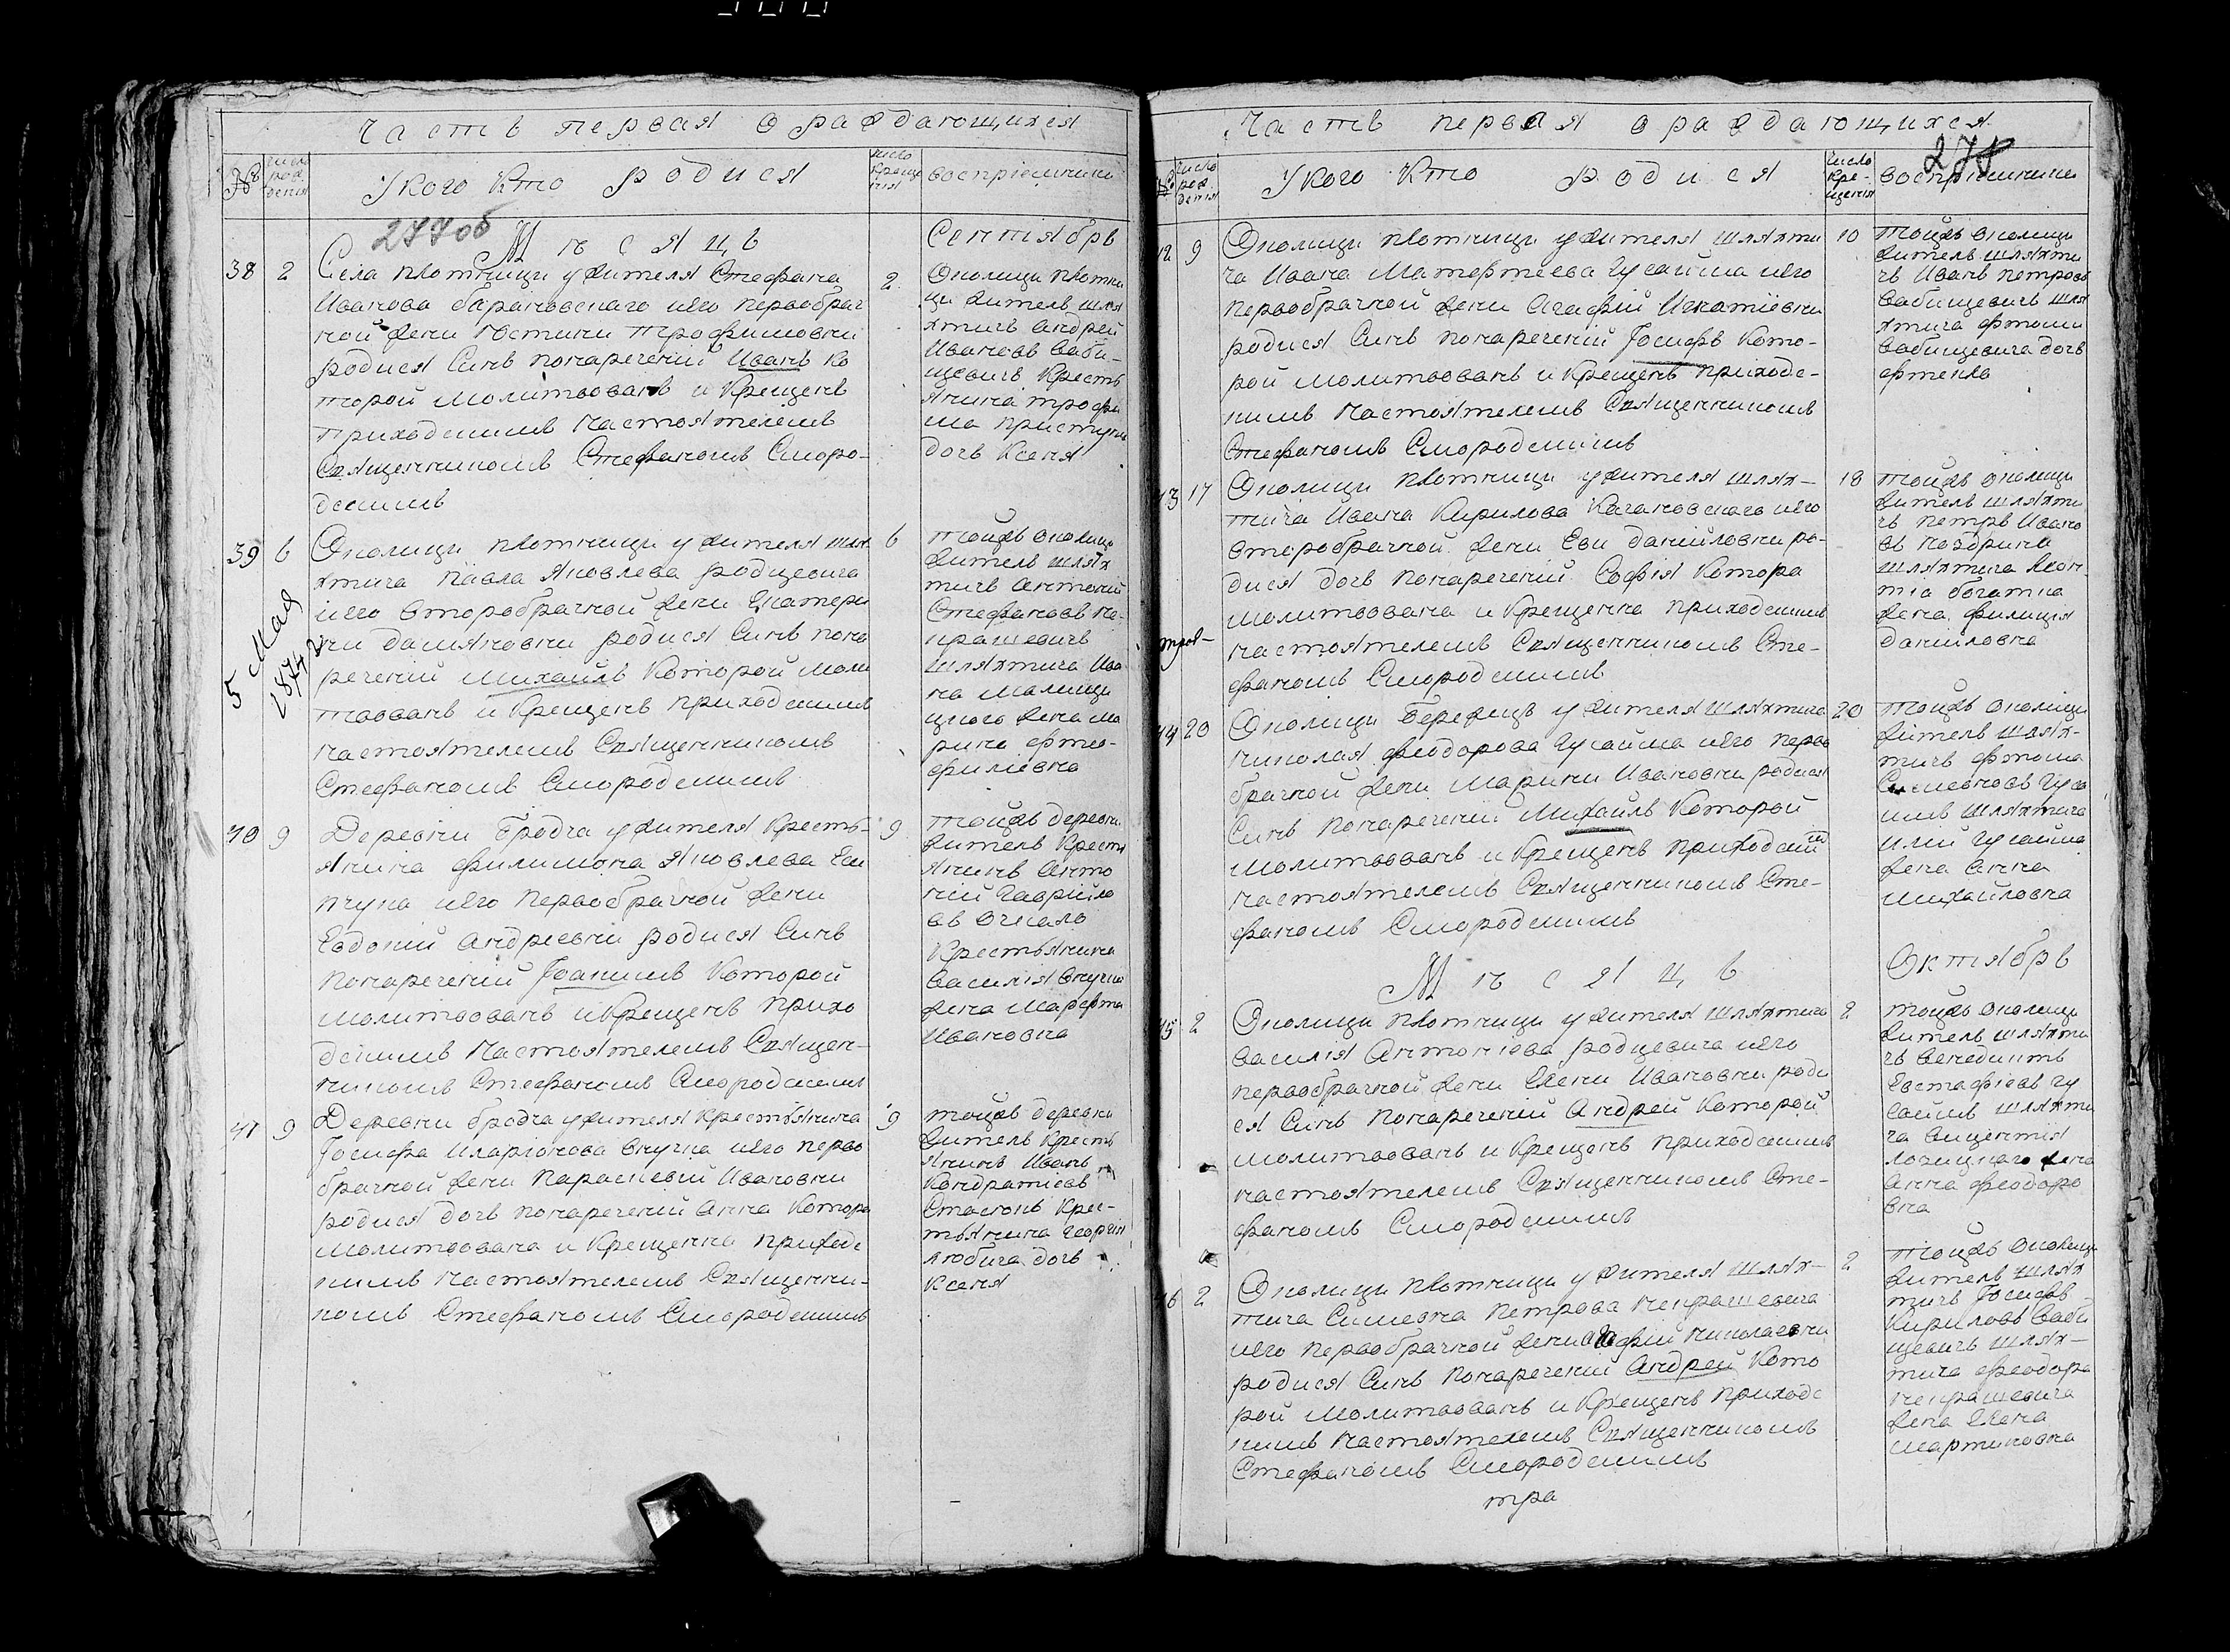 Часть первая о раждающихся
№
число рождения
Укого кто родися
число крещения
восприемники
277 об
Мѣсяць
Сентябрь
38 2
Села плотници ужителя Стефана
Иванова барановскаго иего первобрач
ной жени Юстини трофимовни
родися Синъ понареченій Иванъ ко
торой молитвованъ и Крещенъ
приходскимъ настоятелемъ
Священникомъ Стефаномъ Смород-
скимъ
2
Околици плотни
ци житель шля
хтичъ андрей
Ивановъ Ваби-
щевичъ Кресть
янина трофи
ма
дочь Ксенія
39 6
Околици плотници ужителя шля
хтича павла Яковлева родцевича
иего второбрачной жени Екатери
ни даміяновни родися Синъ пона
реченій Михаилъ Которой моли
твованъ и Крещенъ приходскимъ
настоятелемъ Священникомъ
Стефаномъ Смородскимъ
5 Мая
1874
6
тойжъ околици
житель шлях
тичъ антоній
Стефановъ Не-
прашевичъ
шляхтича Ива
на
жена Ма
рина
40 9
Деревни Бродча ужителя Кресть-
янина филимона Яковлева
иего первобрачной жени
Евдокіи андріевни родися Синъ
понареченій Іоакимъ Которой
молитвованъ и Крещенъ прихо
дскимъ настоятелемъ Священ-
никомъ Стефаномъ Смородскимъ
9
тойжъ деревни
житель Кресть
янинъ анто
ній Гаврило
въ
Крестьянина
Василія внучка
жена Марфта
Ивановна
41 9
Деревни бродча ужителя крестьянина
Іосифа Иларіонова внучка иего перво
брачной жени Параскевіи Ивановни
родися дочь понареченій анна Котора
молитвована и Крещенна приходс
кимъ настоятелемъ Священни-
комъ Стефаномъ Смородскимъ
9
тойжъ деревни
житель Кресть
янинъ Иванъ
Кондратіевъ
Стасюкъ Крес-
тьянина Георгія
дочь
Ксенія
Часть первая о раждающихся
278
№
число рождения
Укого Кто родися
число Крещения
восприемники
42 9
Околици плотници ужителя шляхти
ча Ивана Матефтеева Гусайма иего
первобрачной жени Агафіи Игнатіевни
родися Синъ понареченій Іосифъ Кото-
рой молитвованъ и Крещенъ приходс-
кимъ настоятелемъ Священникомъ
Стефаномъ Смородскимъ
10
тойжъ околици
житель шляхти
чъ Иванъ петровъ
Вабищевичъ шля
хтича фтоми
Вабищевича дочь
фтекла
43 17
Околици плотници ужителя шлях-
тича Ивана Кирилова Качановскаго иего
второбрачной жени Еви данійловни ро-
дися дочь понареченій Софія Котора
молитвована и Крещенна приходскимъ
настоятелемъ Священникомъ Сте-
фаномъ Смородскимъ
18
тойжъ околици
житель шляхти
чъ петръ Ивано
въ
шляхтича Леон
тія богатка
жена филиція
Даниловна
44 20
Околици Бережцъ ужителя шляхтича
николая феодорова Гусайма иего перво
брачной жени Марини Ивановни родися
Синъ понареченій Михаилъ Которой
молитвованъ и Крещенъ приходским
настоятелемъ Священникомъ Сте-
фаномъ Смородскимъ
20
тойжъ околици
житель шлях-
тичъ фтома
Симеоновъ Гуса
имъ шляхтича
иліи Гусайма
жена анна
михайловна
Мѣсяць
Октябрь
45 2
Околици плотници ужителя шляхтича
василія антоніева родцевича иего
первобрачной жени Елени Ивановни роди
ся Синъ понареченій андрей Которой
молитвованъ и Крещенъ приходскимъ
настоятелемъ Священникомъ Сте-
фаномъ Смородскимъ
2
тойжъ околици
житель шляхти
чъ венедиктъ
Евстафіевъ Гу
саимъ шляхти
ча викентія
жена
анна феодоро
вна
46 2
Околици плотници ужителя шлях-
тича Симеона петрова непрашевича
иего первобрачной жени агафіи николаевни
родися Синъ понареченій андрей Кото
рой молитвованъ и Крещенъ приходс
кимъ настоятелемъ Священникомъ
Стефаномъ Смородскимъ
2
тойжъ околици
житель шлях
тичъ Іосифъ
Кириловъ Ваби
щевичъ шлях-
тича феодора
непрашевича
жена Елена
мартиновна
тра